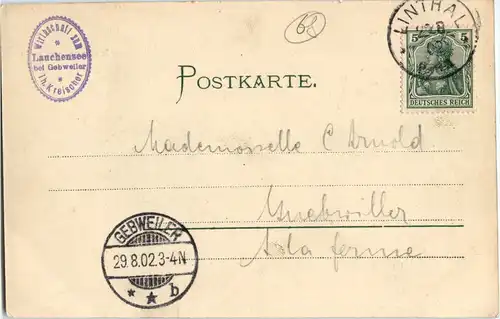 Wirtschaft zum
Lauchensee
bei Gebweiler
Th. Kreischer
68
LINTHAL
5 5
DEUTSCHES REICH
POSTKARTE.
Mademoiselle C Arnold
Guebwiller
A la ferme
GEBWEILER
29.8.02.3-4N
* ★ b